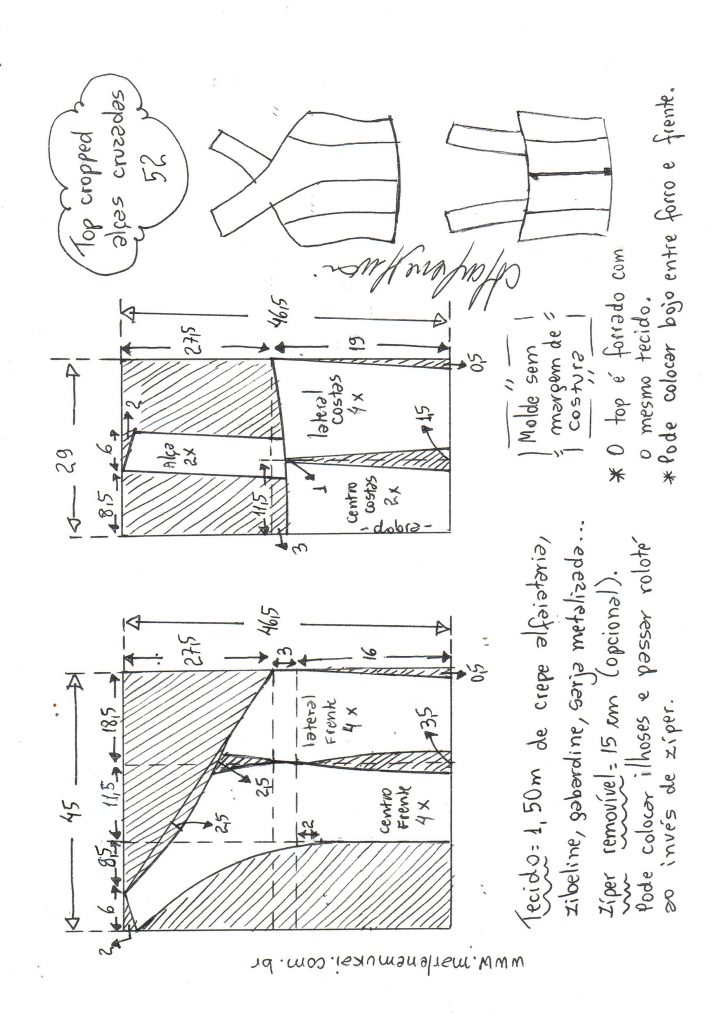 Top cropped
alças cruzadas
52
29
8,5
6
2
27,5
46,5
Alça
2x
11,5
3
1
lateral
costas
4x
19
centro
costas
2x
1,5
0,5
45
6
8,5
11,5
18,5
2
27,5
46,5
3
16
2,5
2,5
2
lateral
Frente
4x
centro
Frente
4x
3,5
0,5
Molde sem
margem de
costura
* O top é forrado com
o mesmo tecido.
* Pode colocar bojo entre forro e frente.
Tecido = 1,50m de crepe alfaiataria,
zibeline, gabardine, sarja metalizada...
Zíper removível = 15 cm (opcional).
Pode colocar ilhoses e passar roloté
ao invés de zíper.
www.marlenemukai.com.br